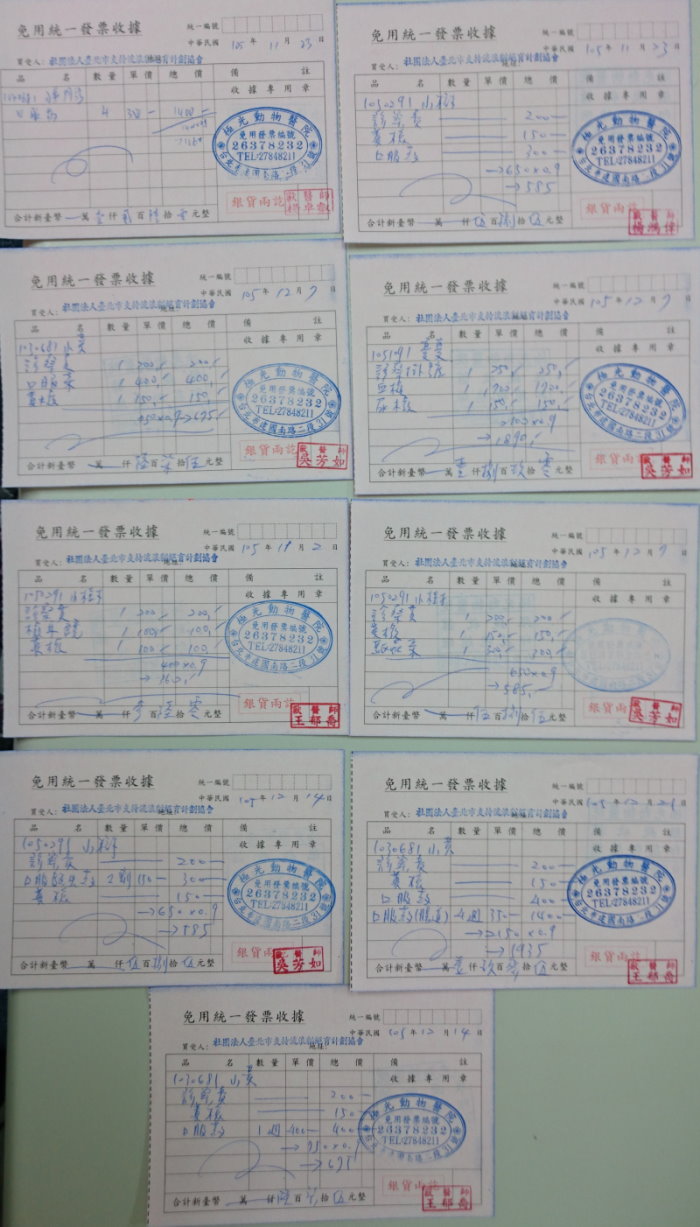 免用統一發票收據
統一編號
中華民國 105 年 11 月 23 日
買受人：社團法人臺北市支持流浪貓絕育計劃協會
品 名 數量 單價 總價 備 註
收據專用章
4
極光動物醫院
免用發票編號
26378232
TEL:27848211
台北市建國南路二段31號
銀貨兩訖
獸醫師
合計新臺幣 萬 仟 百 拾 元整
免用統一發票收據
統一編號
中華民國 105 年 11 月 23 日
買受人：社團法人臺北市支持流浪貓絕育計劃協會
品 名 數量 單價 總價 備 註
收據專用章
1050291
診察費 200
糞檢 150
口服藥 300
→650×0.9
→585
極光動物醫院
免用發票編號
26378232
TEL:27848211
台北市建國南路二段31號
銀貨兩訖
獸醫師
楊鴻偉
合計新臺幣 萬 仟 伍 百 捌 拾 伍 元整
免用統一發票收據
統一編號
中華民國 105 年 12 月 7 日
買受人：社團法人臺北市支持流浪貓絕育計劃協會
品 名 數量 單價 總價 備 註
收據專用章
1030681 小黃
診察費 1 200 200
口服藥 1 400 400
糞檢 1 150 150
極光動物醫院
免用發票編號
26378232
TEL:27848211
台北市建國南路二段31號
銀貨兩訖
獸醫師
吳芳如
合計新臺幣 萬 仟 陸 百 柒 拾 伍 元整
免用統一發票收據
統一編號
中華民國 105 年 12 月 7 日
買受人：社團法人臺北市支持流浪貓絕育計劃協會
品 名 數量 單價 總價 備 註
收據專用章
診察掛號 1 250 250
血檢 1
尿檢 1 150 150
→1890
極光動物醫院
免用發票編號
26378232
TEL:27848211
台北市建國南路二段31號
銀貨兩訖
獸醫師
吳芳如
合計新臺幣 萬 壹 仟 捌 百 玖 拾 零 元整
免用統一發票收據
統一編號
中華民國 105 年 月 2 日
買受人：社團法人臺北市支持流浪貓絕育計劃協會
品 名 數量 單價 總價 備 註
收據專用章
1050291
診察費 1 200 200
1 100 100
糞檢 1 100 100
400×0.9
極光動物醫院
免用發票編號
26378232
TEL:27848211
台北市建國南路二段31號
銀貨兩訖
獸醫師
王郁喬
合計新臺幣 萬 仟 參 百 陸 拾 零 元整
免用統一發票收據
統一編號
中華民國 105 年 12 月 7 日
買受人：社團法人臺北市支持流浪貓絕育計劃協會
品 名 數量 單價 總價 備 註
收據專用章
1050291
診察費 1 200 200
糞檢 1 150 150
1 300 300
650×0.9
→585
銀貨兩訖
獸醫師
吳芳如
合計新臺幣 萬 仟 伍 百 捌 拾 伍 元整
免用統一發票收據
統一編號
中華民國 105 年 12 月 14 日
買受人：社團法人臺北市支持流浪貓絕育計劃協會
品 名 數量 單價 總價 備 註
收據專用章
1050291
診察費 200
150 300
糞檢 150
→650×0.9
→585
極光動物醫院
免用發票編號
26378232
TEL:27848211
台北市建國南路二段31號
銀貨兩訖
獸醫師
吳芳如
合計新臺幣 萬 仟 伍 百 捌 拾 伍 元整
免用統一發票收據
統一編號
中華民國 105 年 12 月 21 日
買受人：社團法人臺北市支持流浪貓絕育計劃協會
品 名 數量 單價 總價 備 註
收據專用章
1030681 小黃
診察費 200
糞檢 150
口服藥 400
4週 350 1400
→2150×0.9
→1935
極光動物醫院
免用發票編號
26378232
TEL:27848211
台北市建國南路二段31號
銀貨兩訖
獸醫師
王郁喬
合計新臺幣 萬 壹 仟 玖 百 參 拾 伍 元整
免用統一發票收據
統一編號
中華民國 105 年 12 月 14 日
買受人：社團法人臺北市支持流浪貓絕育計劃協會
品 名 數量 單價 總價 備 註
收據專用章
1030681 小黃
診察費 200
糞檢 150
口服藥 1週 400 400
極光動物醫院
免用發票編號
26378232
TEL:27848211
台北市建國南路二段31號
銀貨兩訖
獸醫師
王郁喬
合計新臺幣 萬 仟 百 拾 伍 元整